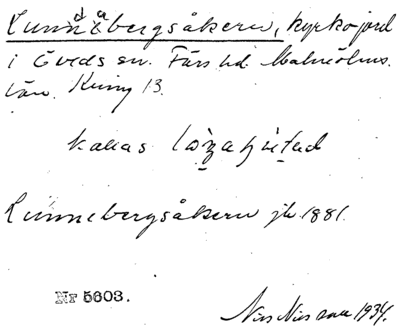 Lunnebergsåkern, kyrkojord
i Öveds sn. Färs hd. Malmöhus
län. Kuing 13.
kallas
Lunnebergsåkern jb 1881.
Nr 5603.
Nils Nilsson 1934.